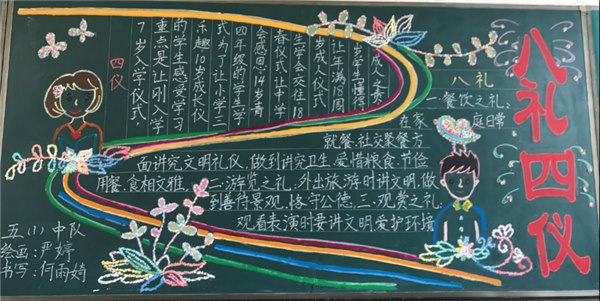 八礼四仪
四仪
7岁入学仪式,
重点是让刚入学
的学生感受学习
乐趣10岁成长仪
式为了让小学三、
四年级的学生学
会感恩14岁青
春仪式让中学
生学会交往18
岁成人仪式
让年满18周
岁学生懂得
成人之责
八礼
一.餐饮之礼:
在家庭日常
就餐.社交聚餐方
面讲究文明礼仪,做到讲究卫生.爱惜粮食.节俭
用餐.食相文雅.二.游览之礼.外出旅游时讲文明,做
到善待景观.恪守公德.三.观赏之礼:
观看表演时要讲文明爱护环境
五(1)中队
绘画:严婷
书写:何雨婧